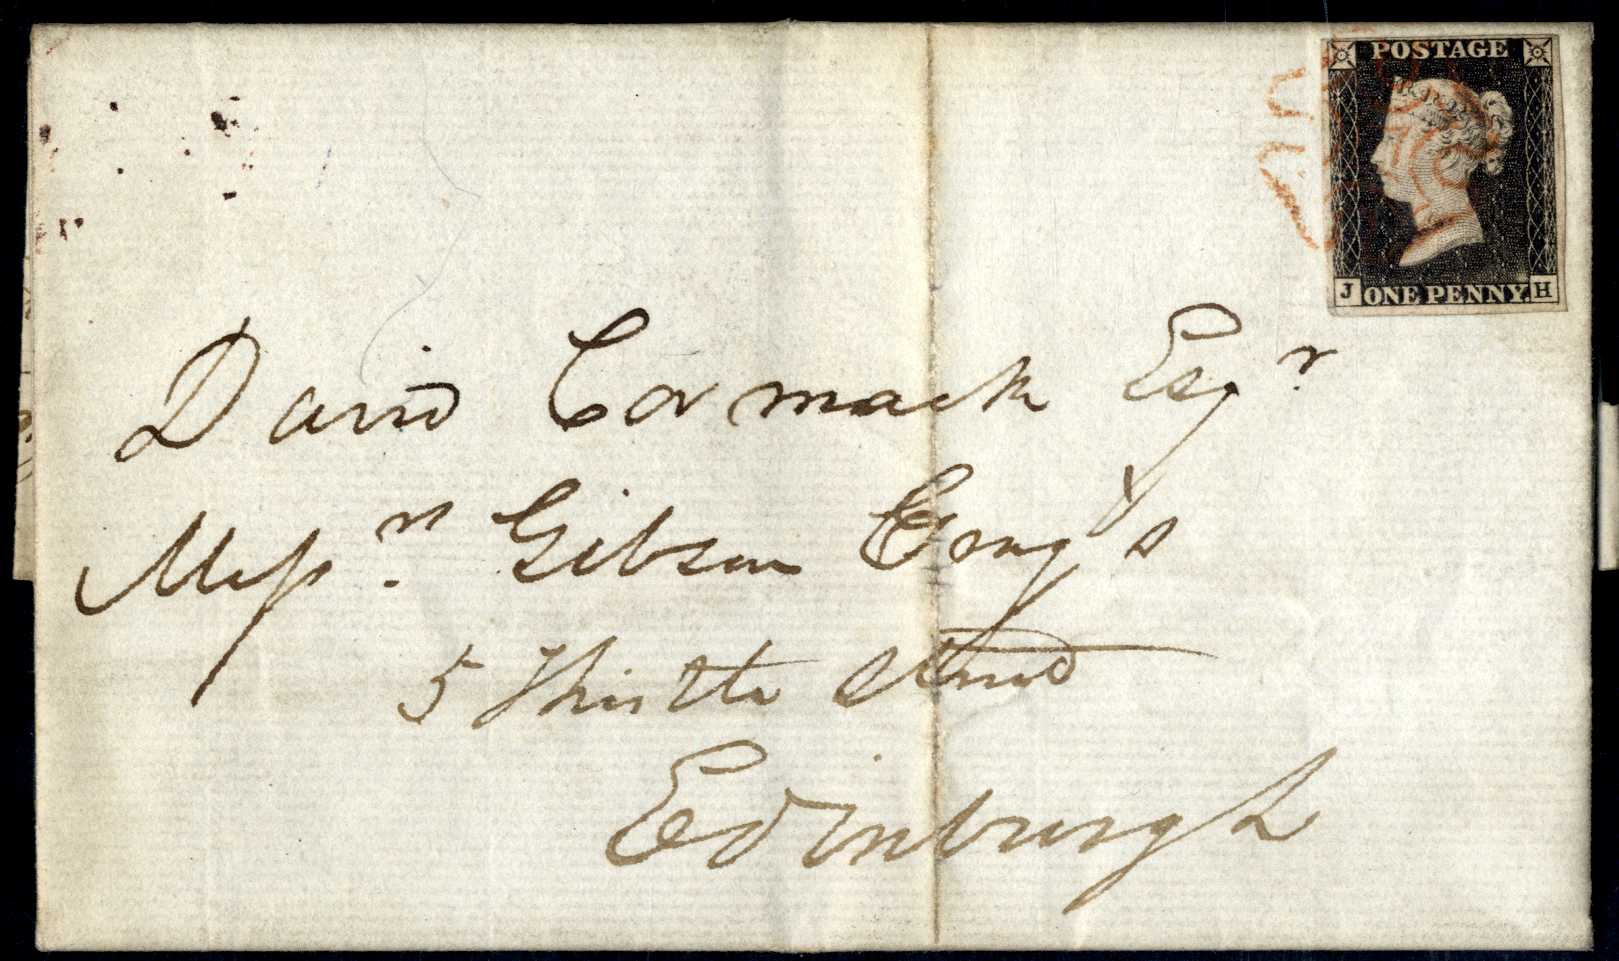 POSTAGE
J ONE PENNY. H
David Cormack Esqr
Messrs. Gibson Craig's
5 Thistle Street
Edinburgh